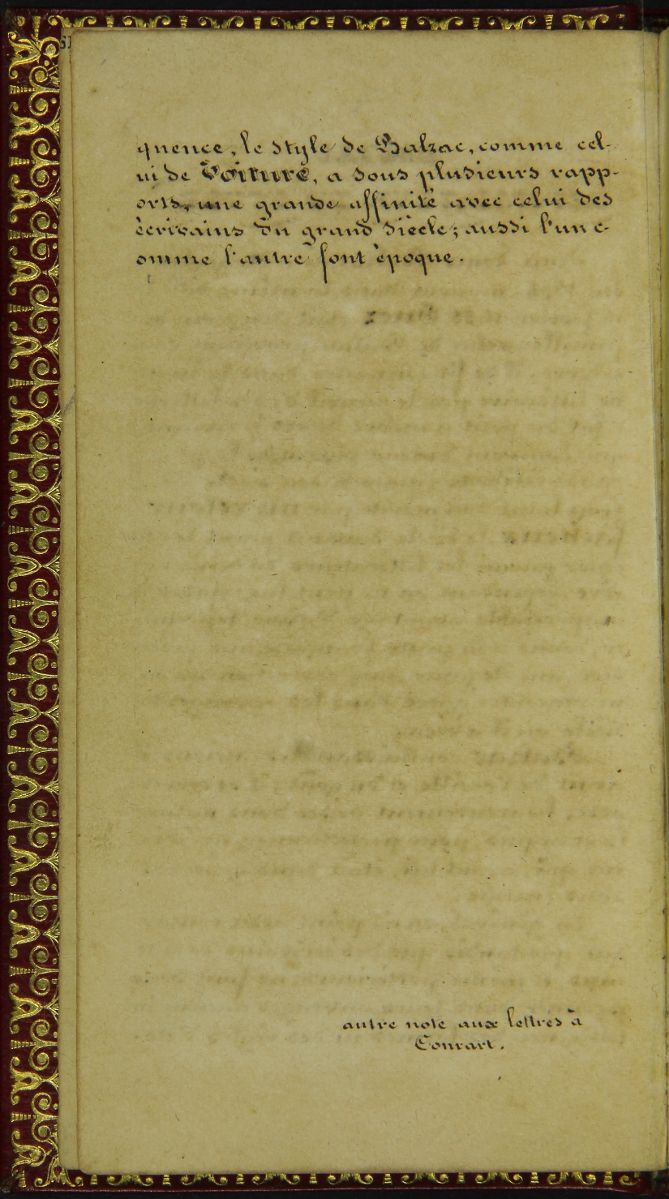 quence, le style de Balzac, comme cel-
ui de Voiture, a sous plusieurs rapp-
orts, une grande affinité avec celui des
écrivains du grand siècle; aussi l'un c-
omme l'autre font époque.
autre note aux lettres à
Conrart.